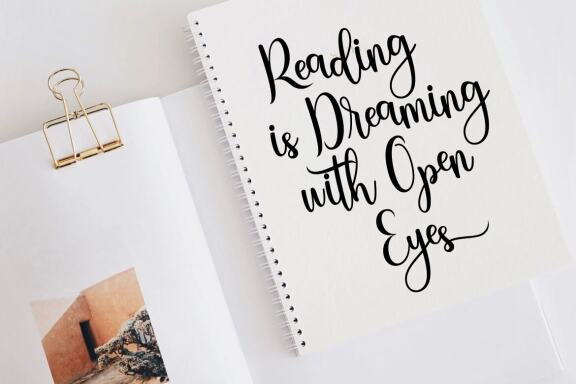 Reading
is Dreaming
with Open
Eyes